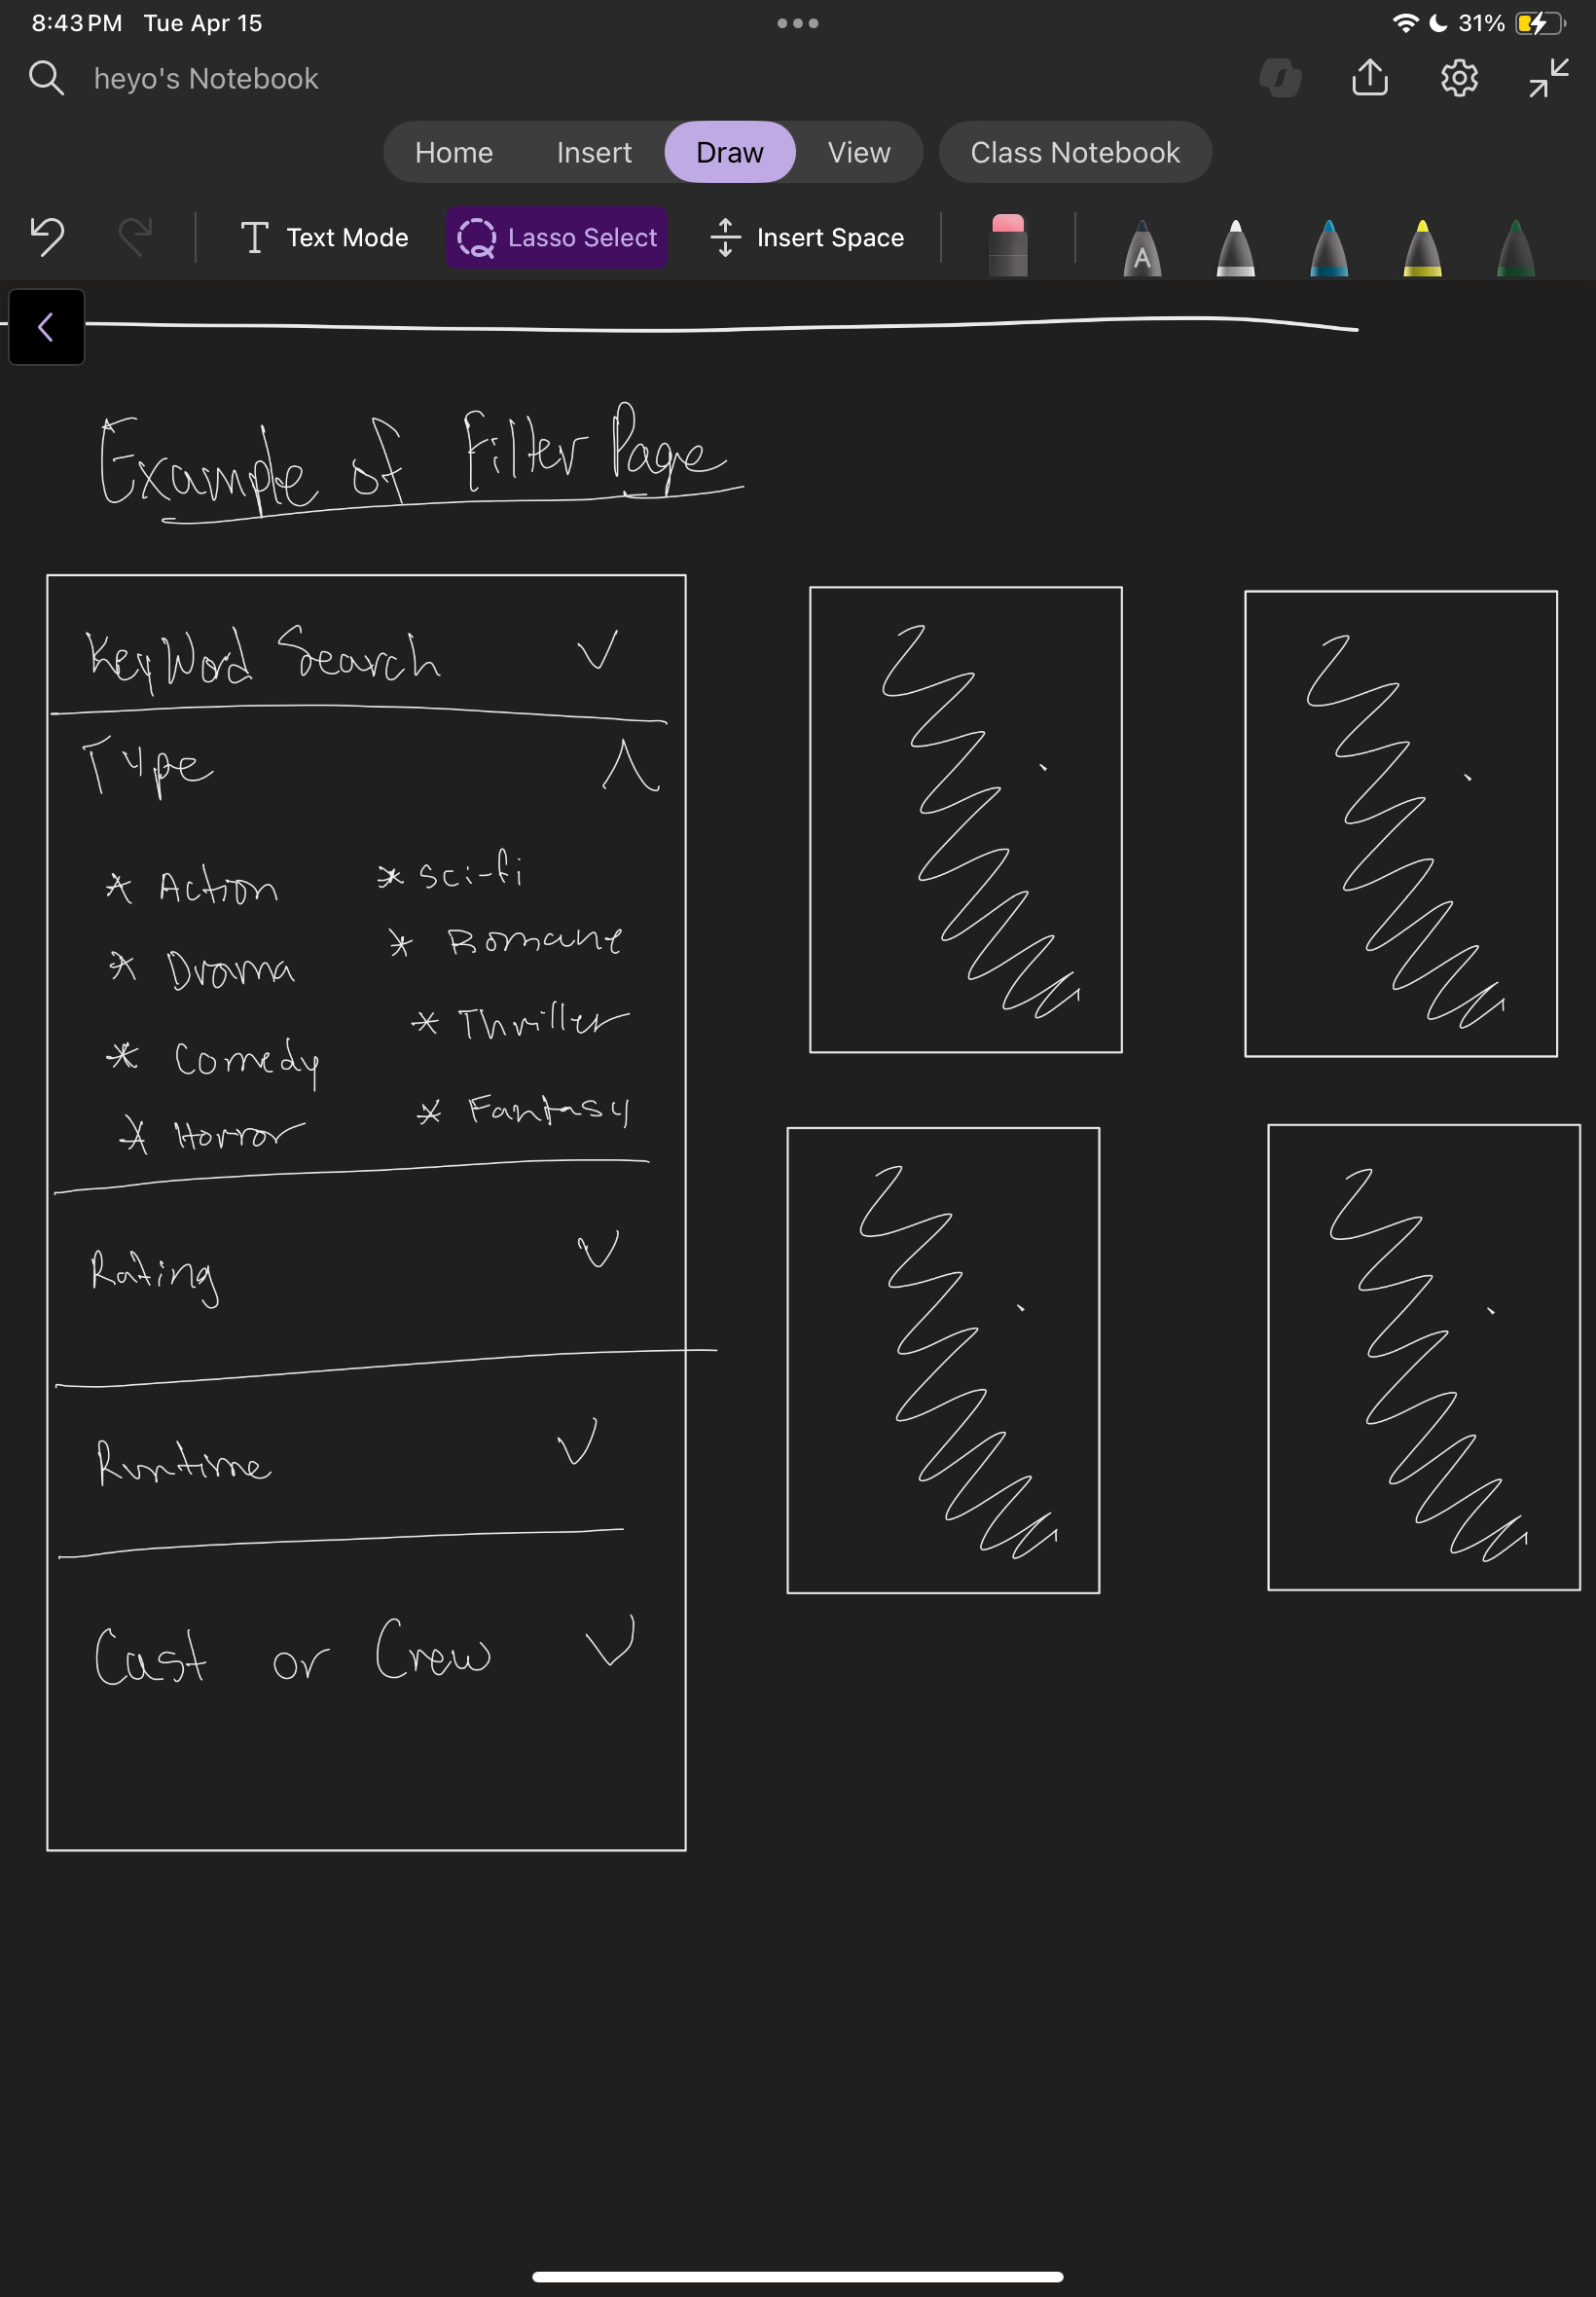 8:43 PM Tue Apr 15 31%
heyo's Notebook
Home Insert Draw View Class Notebook
Text Mode Lasso Select Insert Space A
Example of Filter Page
KeyWord Search
Type
* Action * Sci-fi
* Drama * Romance
* Comedy * Thriller
* Horror * Fantasy
Rating
Runtime
Cast or Crew